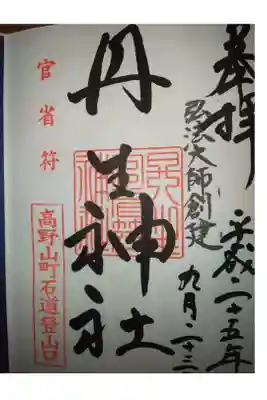 奉拝
弘法大師創建
平成二十五年
九月二十三
丹生神社
官省符
高野山町石道登山口